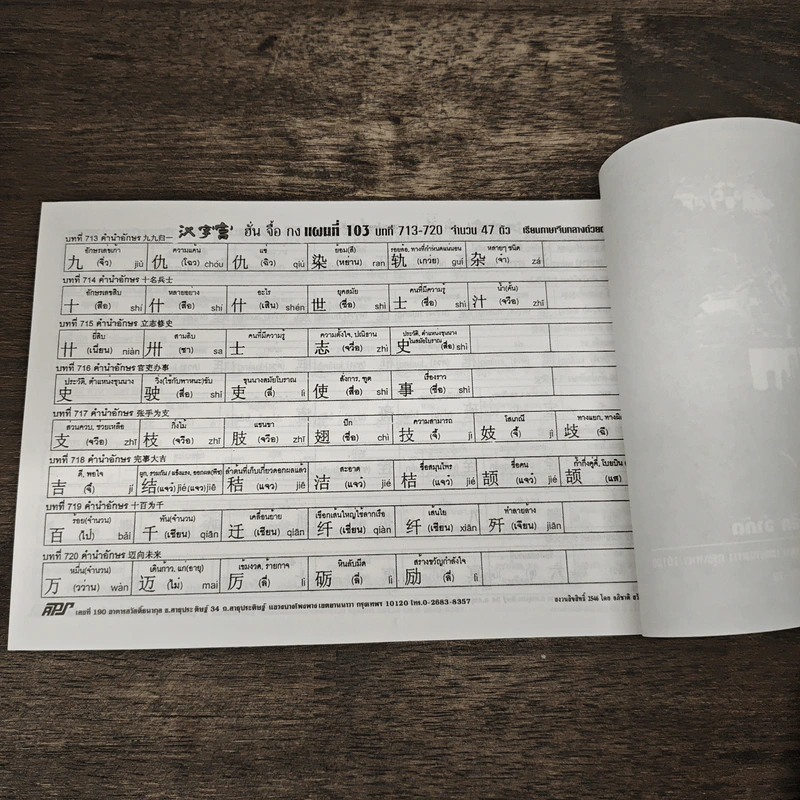 บทที่ 713 คำนำอักษร 九九归一 汉字宫 ฮั่น จื้อ กง แผ่นที่ 103 บทที่ 713-720 จำนวน 47 ตัว เรียนภาษาจีนกลางด้วยต
อักษรเลขเก้า ความแค้น แซ่ ย้อม(สี) รอยล้อ, ทางที่กำหนดแน่นอน หลายๆ ชนิด
九 (จิ่ว) jiǔ 仇 (โฉว) chóu 仇 (ฉิว) qiú 染 (หย่าน) ran 轨 (เกว่ย) guǐ 杂 (จ๋า) zá
บทที่ 714 คำนำอักษร 十名兵士
อักษรเลขสิบ หลายอย่าง อะไร ยุคสมัย คนที่มีความรู้ น้ำ(คั้น)
十 (สือ) shí 什 (สือ) shí 什 (เสิน) shén 世 (ซื่อ) shì 士 (ซื่อ) shì 汁 (จรือ) zhī
บทที่ 715 คำนำอักษร 立志修史
ยี่สิบ สามสิบ คนที่มีความรู้ ความตั้งใจ, ปณิธาน ประวัติ, ตำแหน่งขุนนางในสมัยโบราณ
廿 (เนี่ยน) niàn 卅 (ซา) sa 士 志 (จรื้อ) zhì 史 (สื่อ) shǐ
บทที่ 716 คำนำอักษร 官吏办事
ประวัติ, ตำแหน่งขุนนาง วิ่ง(ใช้กับพาหนะ)ขับ ขุนนางสมัยโบราณ สั่งการ, ทูต เรื่องราว
史 驶 (สื่อ) shǐ 吏 (ลี่) lì 使 (สื่อ) shǐ 事 (ซื่อ) shì
บทที่ 717 คำนำอักษร 张手为支
สวนควบ, ช่วยเหลือ กิ่งไม้ แขนขา ปีก ความสามารถ โสเภณี ทางแยก,
支 (จรือ) zhī 枝 (จรือ) zhī 肢 (จรือ) zhī 翅 (ชื่อ) chì 技 (จี้) jì 妓 (จี้) jì 歧 (ฉี)
บทที่ 718 คำนำอักษร 完事大吉
ดี, พอใจ ผูก, รวมกัน / แข็งแรง, ออกผล(พืช) ลำต้นที่เก็บเกี่ยวดอกผลแล้ว สะอาด ชื่อสมุนไพร ชื่อคน
吉 (จี๋) jí 结 (แจว๋) jié (แจว) jiē 秸 (แจว) jiē 洁 (แจว๋) jié 桔 (แจว๋) jié 颉 (แจว๋) jié 颉
บทที่ 719 คำนำอักษร 十百为千
ร้อย(จำนวน) พัน(จำนวน) เคลื่อนย้าย เชือกเส้นใหญ่ใช้ลากเรือ เส้นใย ทำลายล้าง
百 (ไป่) bǎi 千 (เชียน) qiān 迁 (เชียน) qiān 纤 (เชี่ยน) qiàn 纤 (เซียน) xiān 歼 (เจียน) jiān
บทที่ 720 คำนำอักษร 迈向未来
หมื่น(จำนวน) เดินก้าว, แก่(อายุ) เข้มงวด, ร้ายกาจ หินลับมีด สร้างขวัญกำลังใจ
万 (วว่าน) wàn 迈 (ไม่) mai 厉 (ลี่) lì 砺 (ลี่) lì 励 (ลี่) lì
APS เลขที่ 190 อาคารสวัสดิ์ธนากุล ถ.สาธุประดิษฐ์ 34 ถ.สาธุประดิษฐ์ แขวงบางโพงพาง เขตยานนาวา กรุงเทพฯ 10120 โทร.0-2683-8357 สงวนลิขสิทธิ์ 2546 โดย